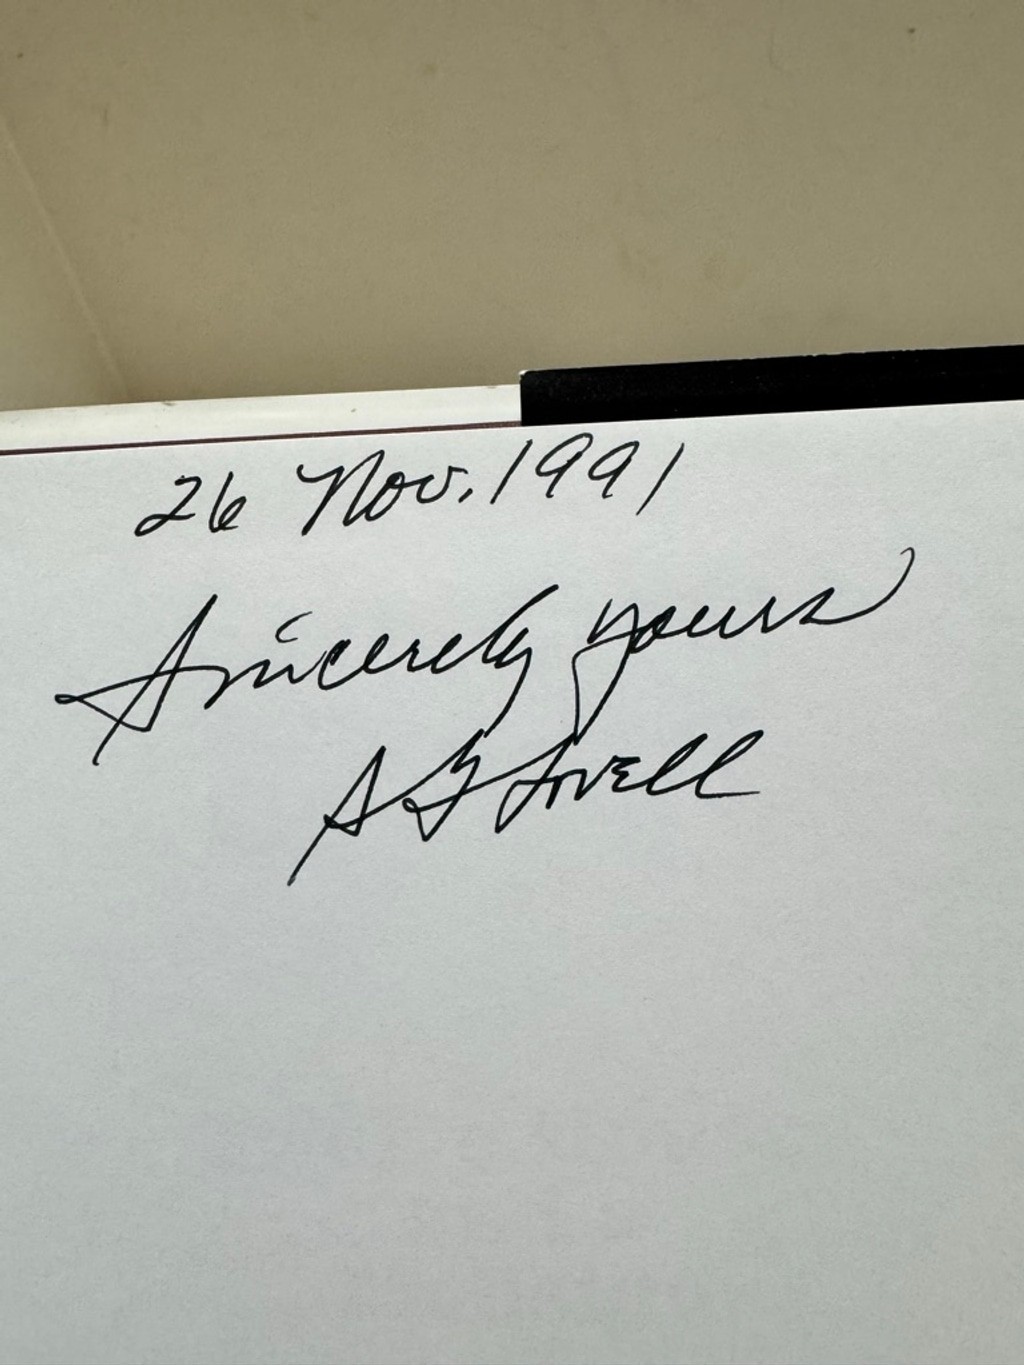 26 Nov. 1991
Sincerely yours
S G Lovell